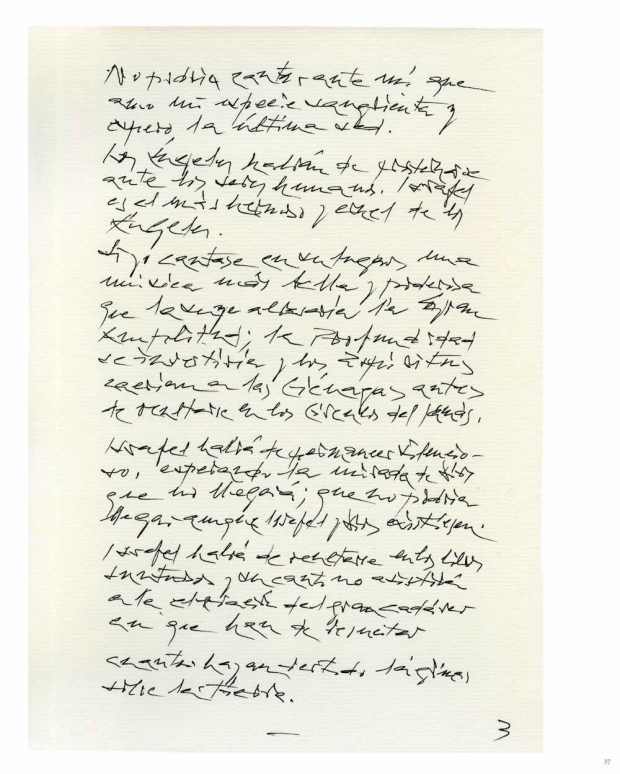 No podría cantar ante mí que
amo mi especie sangrienta y
espero la última sed.
Los Ángeles habrán de
ante los seres humanos. Israfel
es el más hermoso y cruel de los
Ángeles.
Si yo cantase en su lugar, una
música más bella y poderosa
que la suya alzaría la Gran
Amplitud; la Profundidad
se invertiría y los Espíritus
caerían en las Ciénagas antes
de ocultarse en los Círculos del jamás.
Israfel habrá de permanecer silencio-
so, esperando la mirada de dios
que no llegará; que no podría
llegar aunque Israfel y dios existiesen.
Israfel habrá de ocultarse en los
y su canto no asistirá
a la del gran cadáver
en que han de
cuantos hayan vertido lágrimas
sobre la tierra.
3
37